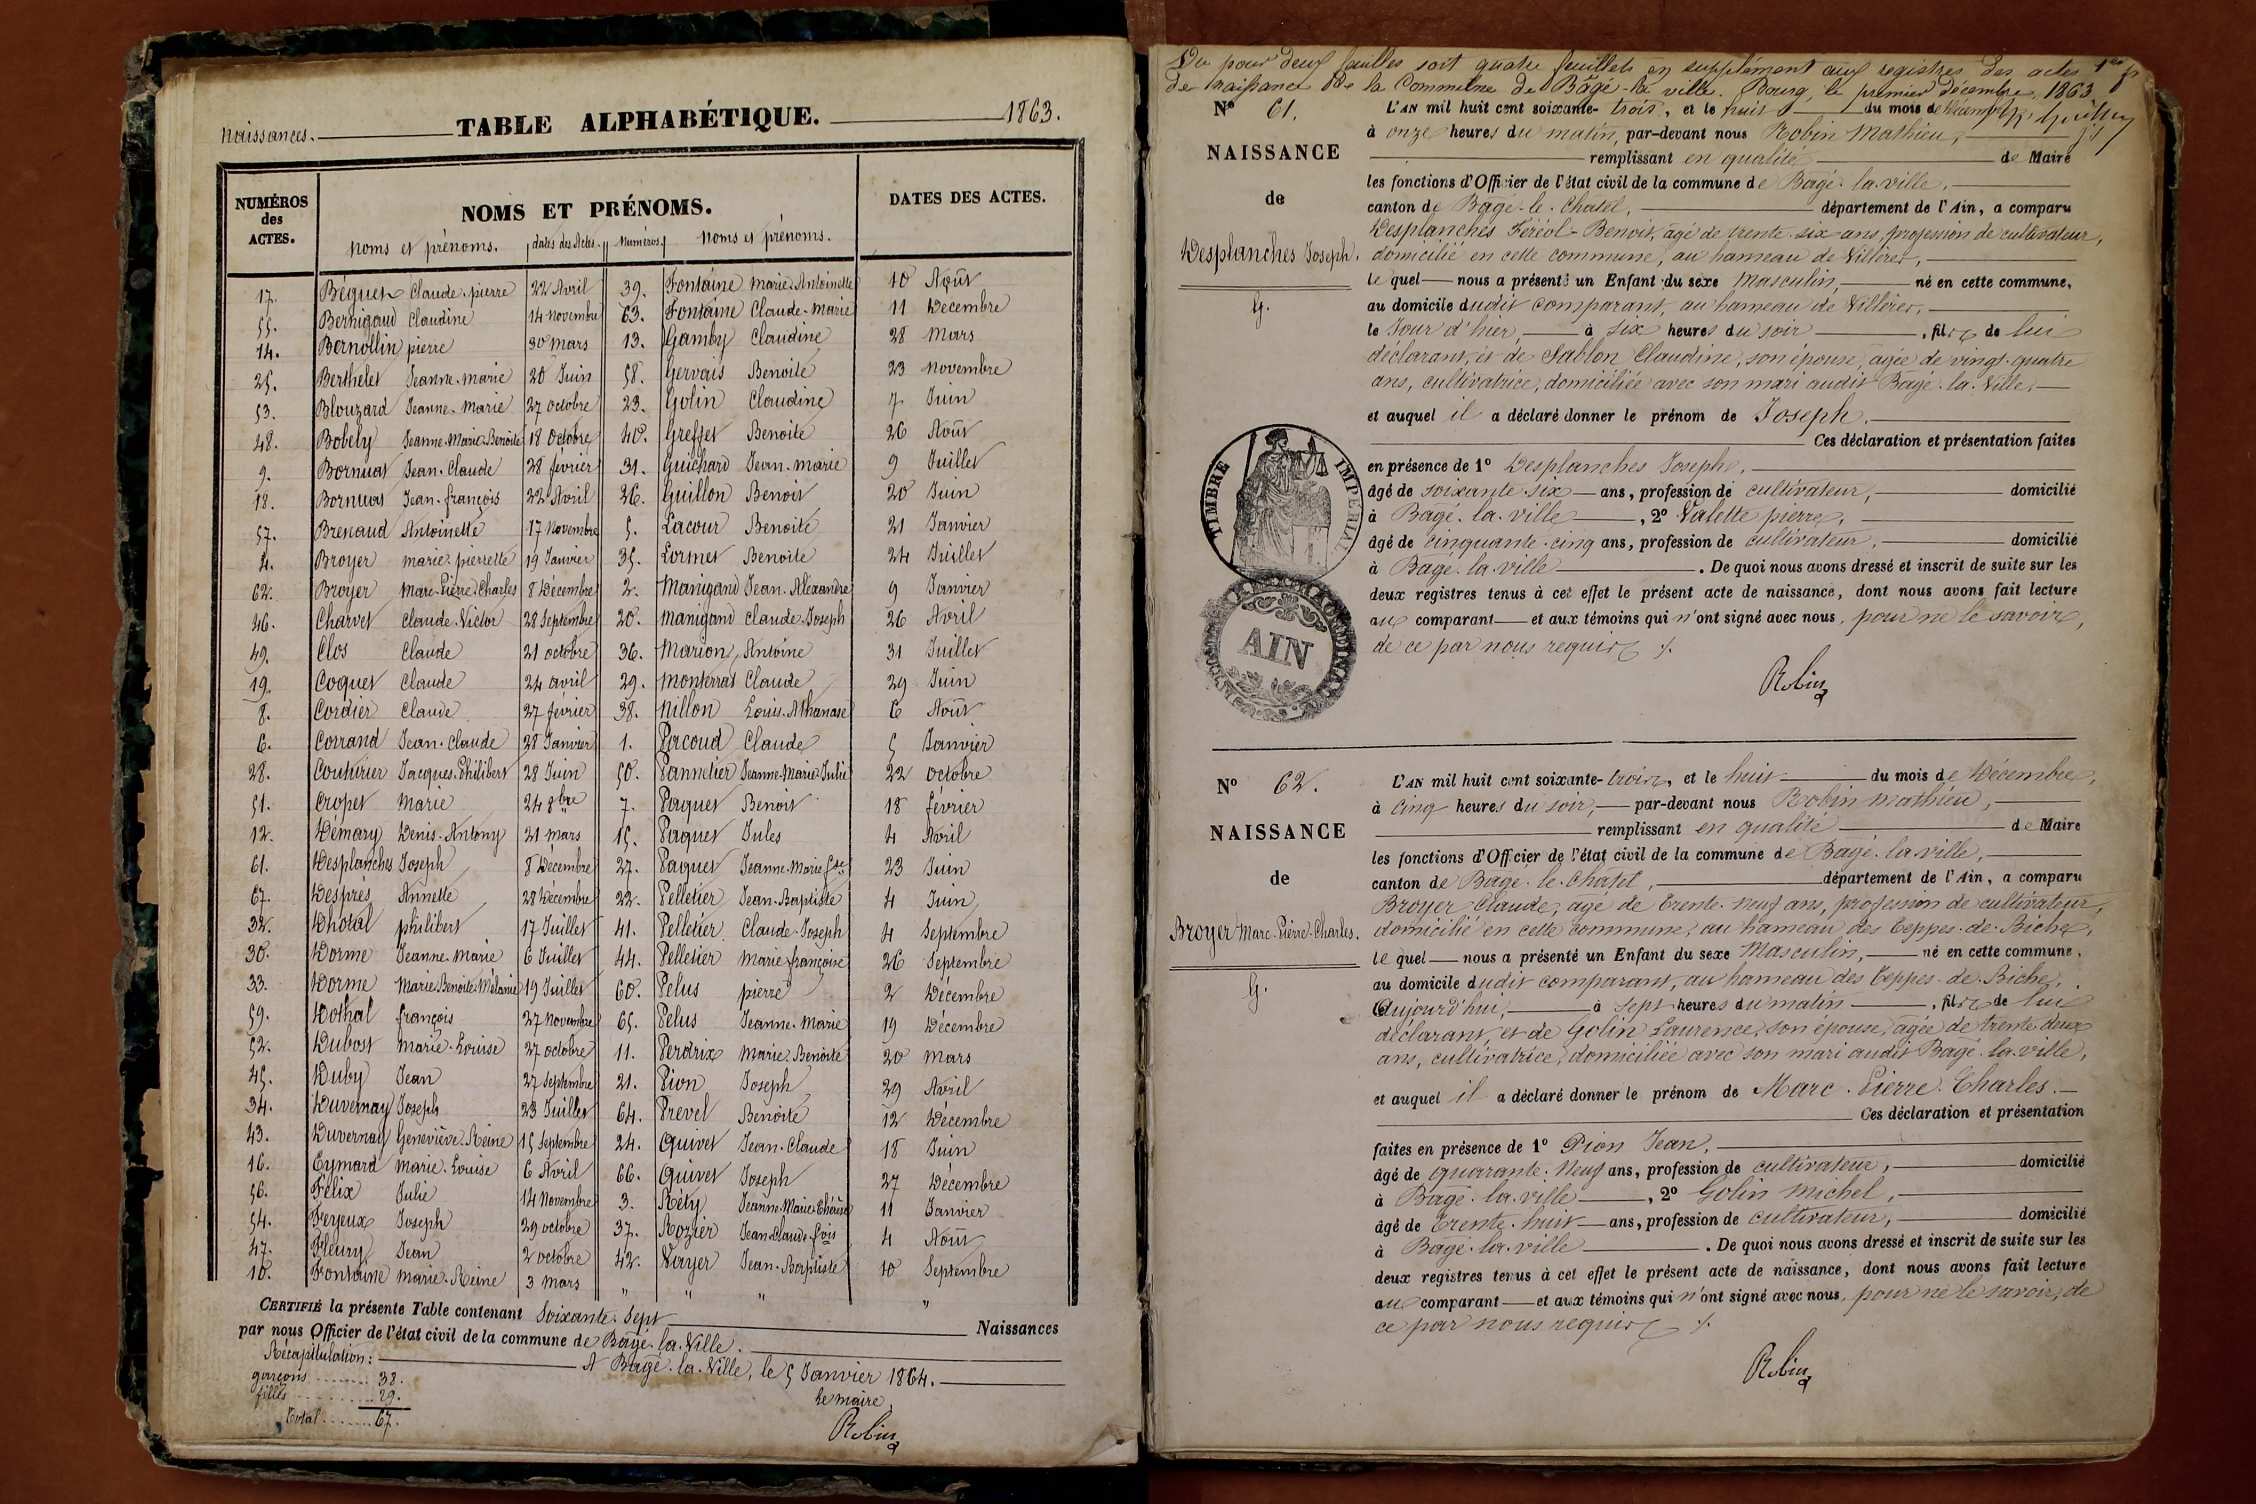 Naissances. TABLE ALPHABÉTIQUE. 1863.
NUMÉROS des ACTES. NOMS ET PRÉNOMS. DATES DES ACTES.
Noms et prénoms. dates des Actes. Numéros. Noms et prénoms.
17. Béguet Claude-pierre 22 Avril 39. Fontaine Marie-Antoinette 10 Août
55. Bernigaud Claudine 14 novembre 63. Fontaine Claude-Marie 11 Décembre
14. Bernollin pierre 30 Mars 13. Gamby Claudine 28 Mars
25. Berthelet Jeanne-Marie 20 Juin 58. Gervais Benoite 23 novembre
53. Blouzard Jeanne-Marie 27 octobre 23. Golin Claudine 7 Juin
48. Bobely Jeanne-Marie-Benoite 18 octobre 40. Greffet Benoite 26 Août
9. Bornuat Jean-Claude 28 février 31. Guichard Jean-Marie 9 Juillet
18. Bornuat Jean-françois 22 Avril 26. Guillon Benoit 20 Juin
57. Brenaud Antoinette 17 Novembre 5. Lacour Benoite 21 Janvier
4. Broyer marie-pierrette 19 Janvier 35. Lormet Benoite 24 Juillet
62. Broyer Marc-Pierre-Charles 8 Décembre 2. Manigand Jean-Alexandre 9 Janvier
46. Charvet Claude-Victor 28 Septembre 20. Manigand Claude-Joseph 26 Avril
49. Clos Claude 21 octobre 36. Marion Antoine 31 Juillet
19. Coquet Claude 24 avril 29. Monterrat Claude 29 Juin
8. Cordier Claude 27 février 38. Nillon Louis-Athanase 6 Août
6. Corrand Jean-Claude 28 Janvier 1. Pacoud Claude 5 Janvier
28. Couturier Jacques-Philibert 28 Juin 50. Pannetier Jeanne-Marie-Julie 22 octobre
51. Cropet Marie 24 8bre 7. Paquet Benoit 18 février
12. Démary Denis-Antony 21 mars 15. Paquet Jules 4 Avril
61. Desplanches Joseph 8 Décembre 27. Paquet Jeanne-Marie-fse 23 Juin
67. Despres Annette 28 Décembre 22. Pelletier Jean-Baptiste 4 Juin
32. Dhotal philibert 17 Juillet 41. Pelletier Claude-Joseph 4 Septembre
30. Dorme Jeanne-Marie 6 Juillet 44. Pelletier Marie-françoise 26 Septembre
33. Dorme Marie-Benoite-Mélanie 19 Juillet 60. Pelus pierre 2 Décembre
59. Dothal françois 27 Novembre 65. Pelus Jeanne-Marie 19 Décembre
52. Dubost Marie-Louise 27 octobre 11. Perdrix Marie-Benoite 20 Mars
45. Duby Jean 27 Septembre 21. Pion Joseph 29 Avril
34. Duvernay Joseph 23 Juillet 64. Prevel Benoite 12 Décembre
43. Duvernay Geneviève-Reine 15 Septembre 24. Quivet Jean-Claude 18 Juin
16. Eymard Marie-Louise 6 Avril 66. Quivet Joseph 27 Décembre
56. Félix Julie 14 Novembre 3. Réty Jeanne-Marie-Thérèse 11 Janvier
54. Feyeux Joseph 29 octobre 37. Rozier Jean-Claude-fois 4 Août
47. Fleury Jean 2 octobre 42. Vayer Jean-Baptiste 10 Septembre
10. Fontaine Marie-Reine 3 Mars " " " "
CERTIFIÉ la présente Table contenant Soixante-Sept Naissances
par nous Officier de l'état civil de la commune de Bagé-la-Ville.
Récapitulation: A Bagé-la-Ville, le 5 Janvier 1864.
garçons 38. le maire,
filles 29.
Total 67. Robin
Vu pour deux feuilles soit quatre feuillets en supplément aux registres des actes
de Naissance de la Commune de Bâgé-la-ville. Bourg, le premier Décembre 1863
N° 61. L'AN mil huit cent soixante-trois, et le huit du mois de Décembre
à onze heures du matin, par-devant nous Robin Mathieu,
NAISSANCE remplissant en qualité de Maire
les fonctions d'Officier de l'état civil de la commune de Bagé-la-ville,
de canton de Bagé-le-Chatel, département de l'Ain, a comparu
Desplanches Féréol-Benoit, âgé de trente-six ans, profession de cultivateur,
Desplanches Joseph. domicilié en cette commune, au hameau de Villeret,
le quel nous a présenté un Enfant du sexe Masculin, né en cette commune,
G. au domicile dudit comparant, au hameau de Villeret,
le Jour d'hier, à six heures du soir, fils de lui
déclarant, et de Sablon Claudine, son épouse, âgée de vingt-quatre
ans, cultivatrice, domiciliée avec son mari audit Bagé-la-Ville,
et auquel il a déclaré donner le prénom de Joseph.
Ces déclaration et présentation faites
en présence de 1° Desplanches Joseph,
âgé de soixante-six ans, profession de cultivateur, domicilié
à Bagé-la-ville, 2° Valette pierre,
âgé de cinquante-cinq ans, profession de cultivateur, domicilié
à Bagé-la-ville. De quoi nous avons dressé et inscrit de suite sur les
deux registres tenus à cet effet le présent acte de naissance, dont nous avons fait lecture
au comparant et aux témoins qui n'ont signé avec nous, pour ne le savoir,
de ce par nous requis ./.
Robin
TIMBRE IMPERIAL
AIN
N° 62. L'AN mil huit cent soixante-trois, et le huit du mois de Décembre,
à cinq heures du soir, par-devant nous Robin Mathieu,
NAISSANCE remplissant en qualité de Maire
les fonctions d'Officier de l'état civil de la commune de Bagé-la-ville,
de canton de Bagé-le-Chatel, département de l'Ain, a comparu
Broyer Claude, âgé de trente-neuf ans, profession de cultivateur,
Broyer Marc-Pierre-Charles. domicilié en cette commune, au hameau des Teppes-de-Biche,
le quel nous a présenté un Enfant du sexe Masculin, né en cette commune,
au domicile dudit comparant, au hameau des Teppes-de-Biche,
G. Aujourd'hui, à sept heures du matin, fils de lui
déclarant, et de Golin Laurence, son épouse, âgée de trente-deux
ans, cultivatrice, domiciliée avec son mari audit Bagé-la-ville,
et auquel il a déclaré donner le prénom de Marc-Pierre-Charles.
Ces déclaration et présentation
faites en présence de 1° Pion Jean,
âgé de quarante-neuf ans, profession de cultivateur, domicilié
à Bagé-la-ville, 2° Golin Michel,
âgé de trente-huit ans, profession de cultivateur, domicilié
à Bagé-la-ville. De quoi nous avons dressé et inscrit de suite sur les
deux registres tenus à cet effet le présent acte de naissance, dont nous avons fait lecture
au comparant et aux témoins qui n'ont signé avec nous, pour ne le savoir, de
ce par nous requis ./.
Robin